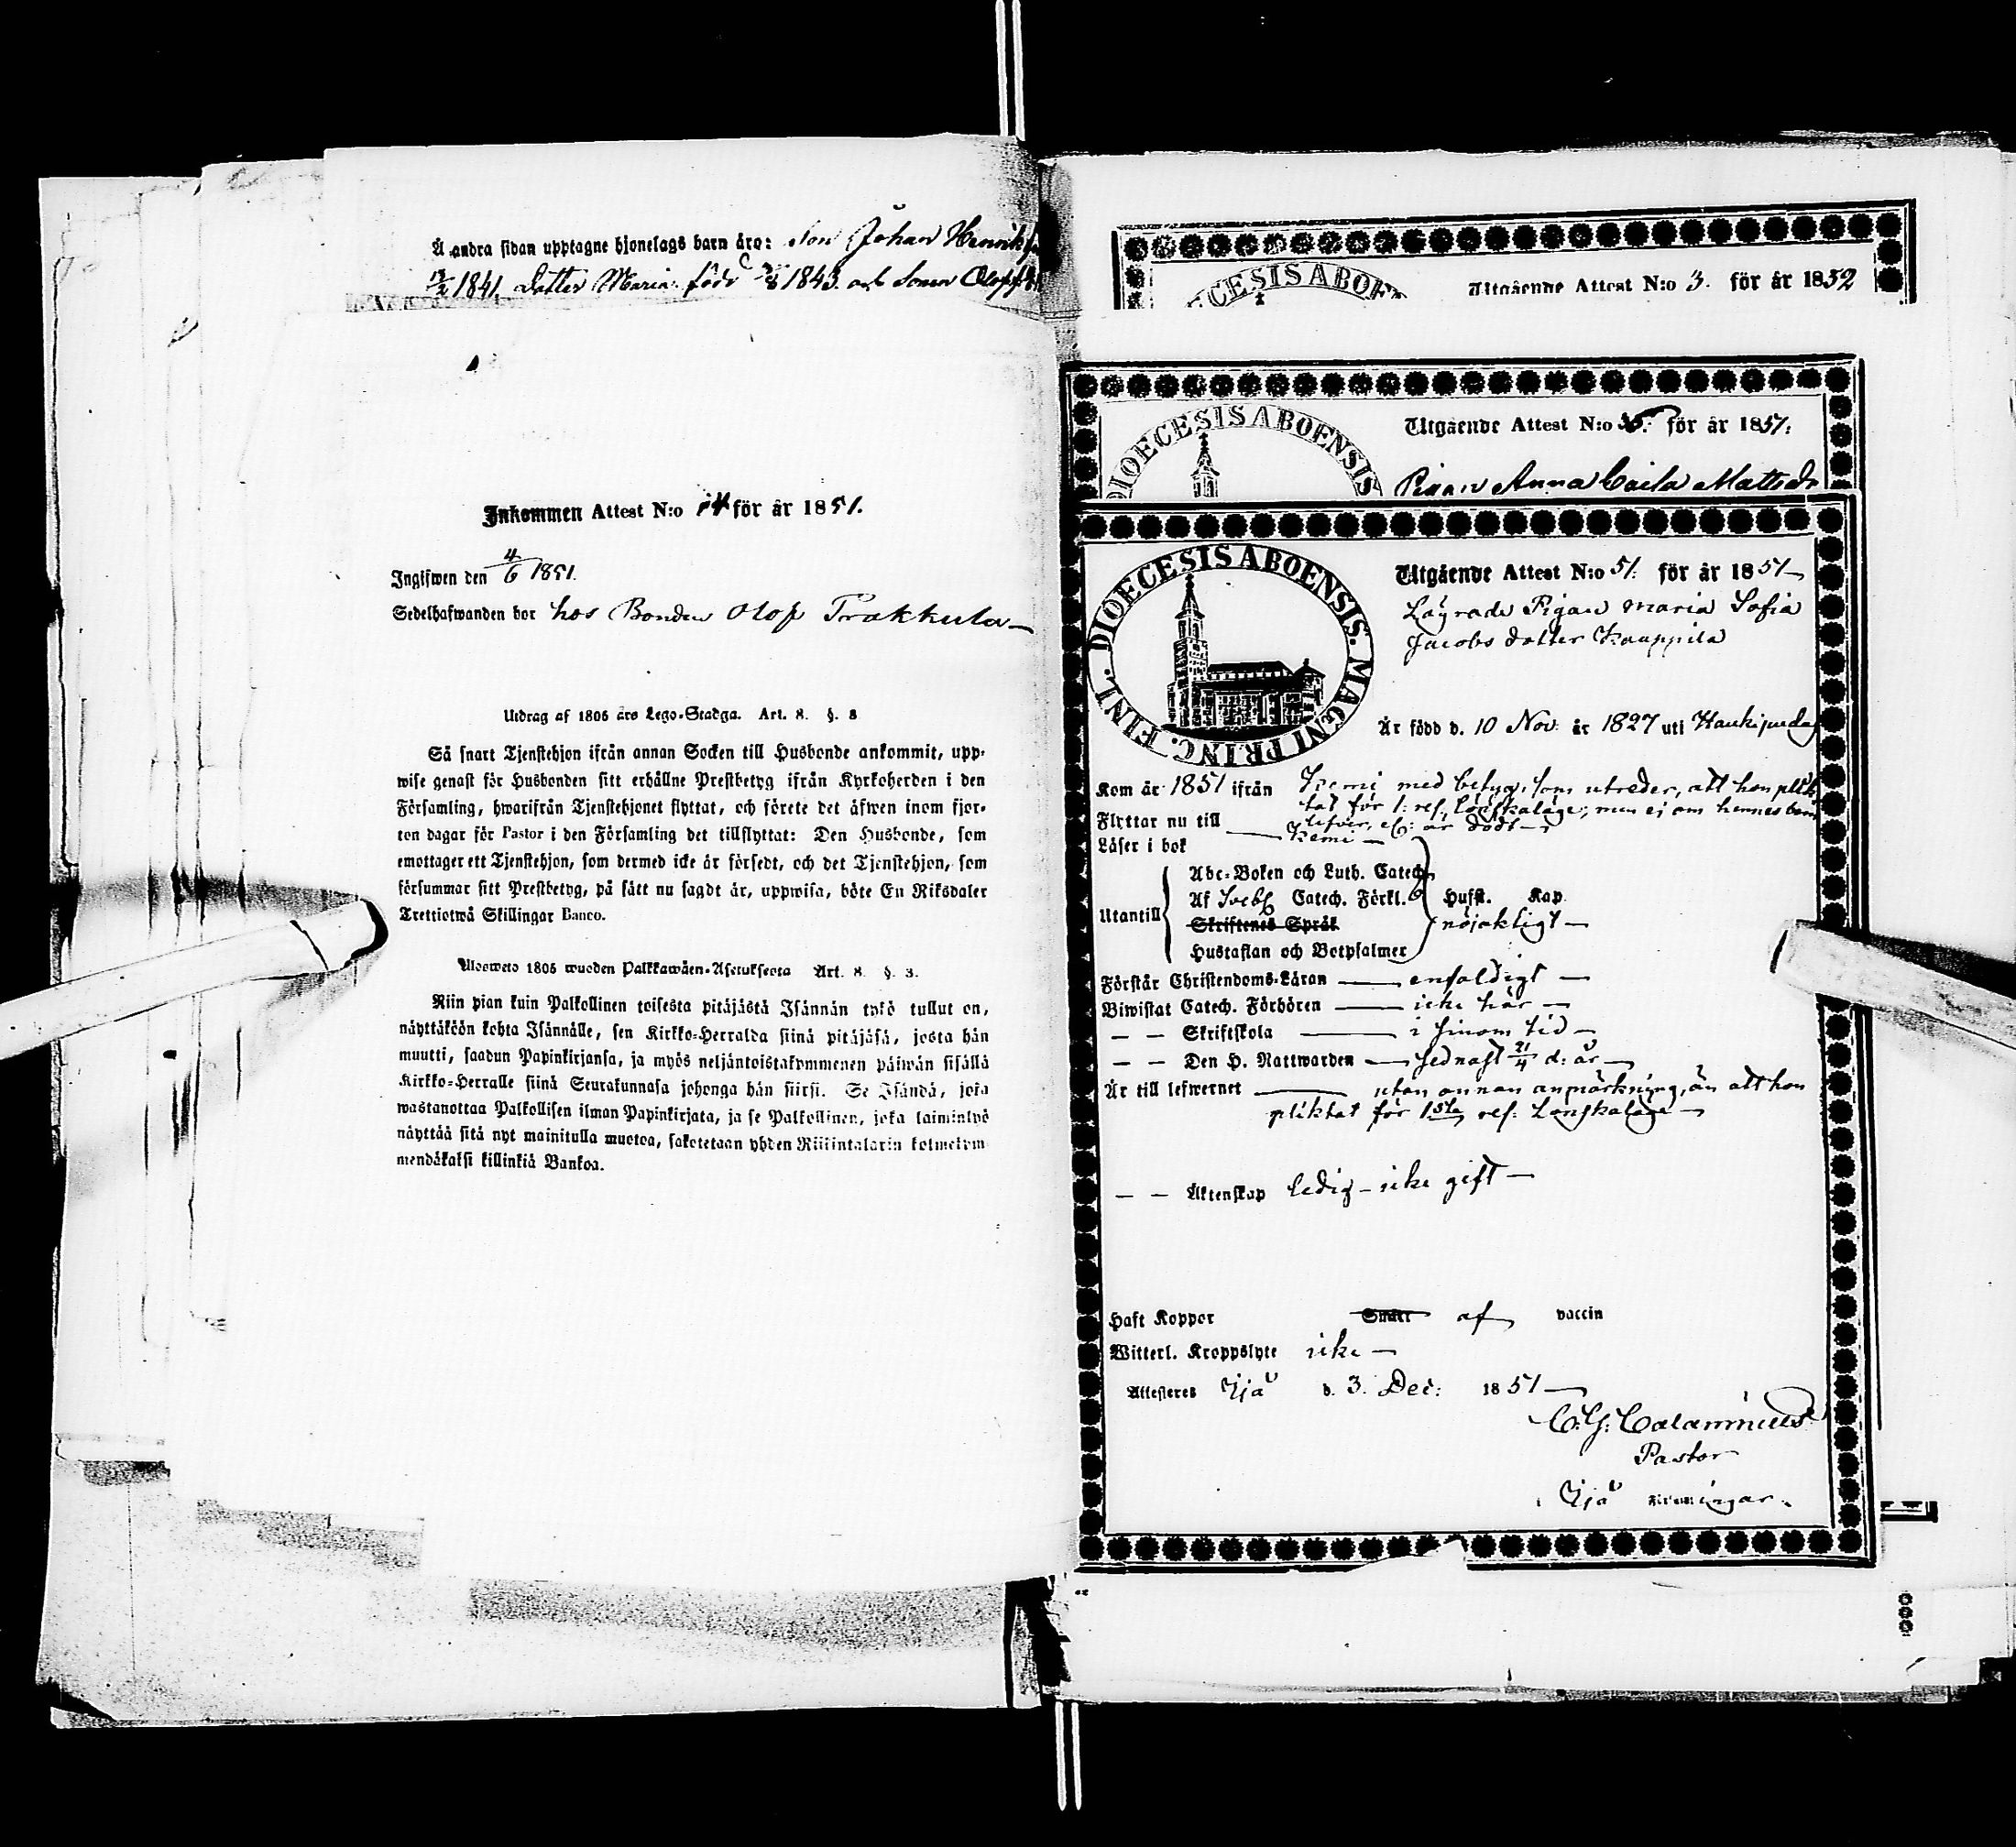 Å andra sidan upptagne hjonelags barn äro: Son Johan Henrik
1841, Dotter Maria född 1843. och Sonen Olof
Inkommen Attest N:o 14 för år 1851.
Ingifwen den 4/6 1851.
Sedelhafwanden bor hos Bonden Olof Trakkula
Utdrag af 1805 års Lego-Stadga. Art. 8. §. 3
Så snart Tjenstehjon ifrån annan Socken till Husbonde ankommit, upp-
wise genast för Husbonden sitt erhållne Prestbetyg ifrån Kyrkoherden i den
Församling, hwarifrån Tjenstehjonet flyttat, och förete det äfwen inom fjor-
ton dagar för Pastor i den Församling det tillflyttat: Den Husbonde, som
emottager ett Tjenstehjon, som dermed icke är försedt, och det Tjenstehjon, som
försummar sitt Prestbetyg, på sätt nu sagdt är, uppwisa, böte En Riksdaler
Trettiotwå Skillingar Banco.
Ulosweto 1805 wuoden Palkkawäen-Asetuksesta Art. 8. §. 3.
Niin pian kuin Palkollinen toisesta pitäjästä Isännän tykö tullut on,
näyttäköön kohta Isännälle, sen Kirkko-Herralda siinä pitäjäsä, josta hän
muutti, saadun Papinkirjansa, ja myös neljäntoistakymmenen päiwän sisällä
Kirkko-Herralle siinä Seurakunnasa johonga hän siirsi. Se Isändä, joka
wastanottaa Palkollisen ilman Papinkirjata, ja se Palkollinen, joka laiminlyö
näyttää sitä nyt mainitulla muotoa, sakotetaan yhden Riikintalarin kolmekym-
mendäkaksi killinkiä Bankoa.
CESIS ABOEN
Utgående Attest N:o 3. för år 1852
DIOECESIS ABOENSIS
Utgående Attest N:o för år 1851.
Pigan Anna Caisa Mattsdr
DIOECESIS ABOENSIS. MAGNI PRINC. FINL.
Utgående Attest N:o 51. för år 1851
Lägrade Pigan Maria Sofia
Jacobs dotter Kauppila
Är född d. 10 Nov. år 1827 uti Haukipudas
Kom år 1851 ifrån Kemi med betyg, som utreder, att hon plik-
tat för 1. res. Lönskaläge; men ej om hennes barn
lefver, el. är dödt
Flyttar nu till Kemi
Läser i bok
Abc-Boken och Luth. Catech.
Utantill Af Sveb. Catech. Förkl. Hufst. Kap
Skriftenes Språk nöjaktigt
Hustaflan och Botpsalmer
Förstår Christendoms-Läran enfaldigt
Biwistat Catech. Förhören icke här
— — Skriftskola i sinom tid
— — Den H. Nattwarden sednast 21/4 d: år
Är till lefwernet utan annan anmärkning, än att hon
pliktat för 1sta res. Lönskaläge
— — Äktenskap ledig - icke gift
Haft Koppor Smitt af vaccin
Witterl. Kroppslyte icke
Attesteres Ijå d. 3. Dec: 1851
C. G. Calamnius
Pastor
Ijå